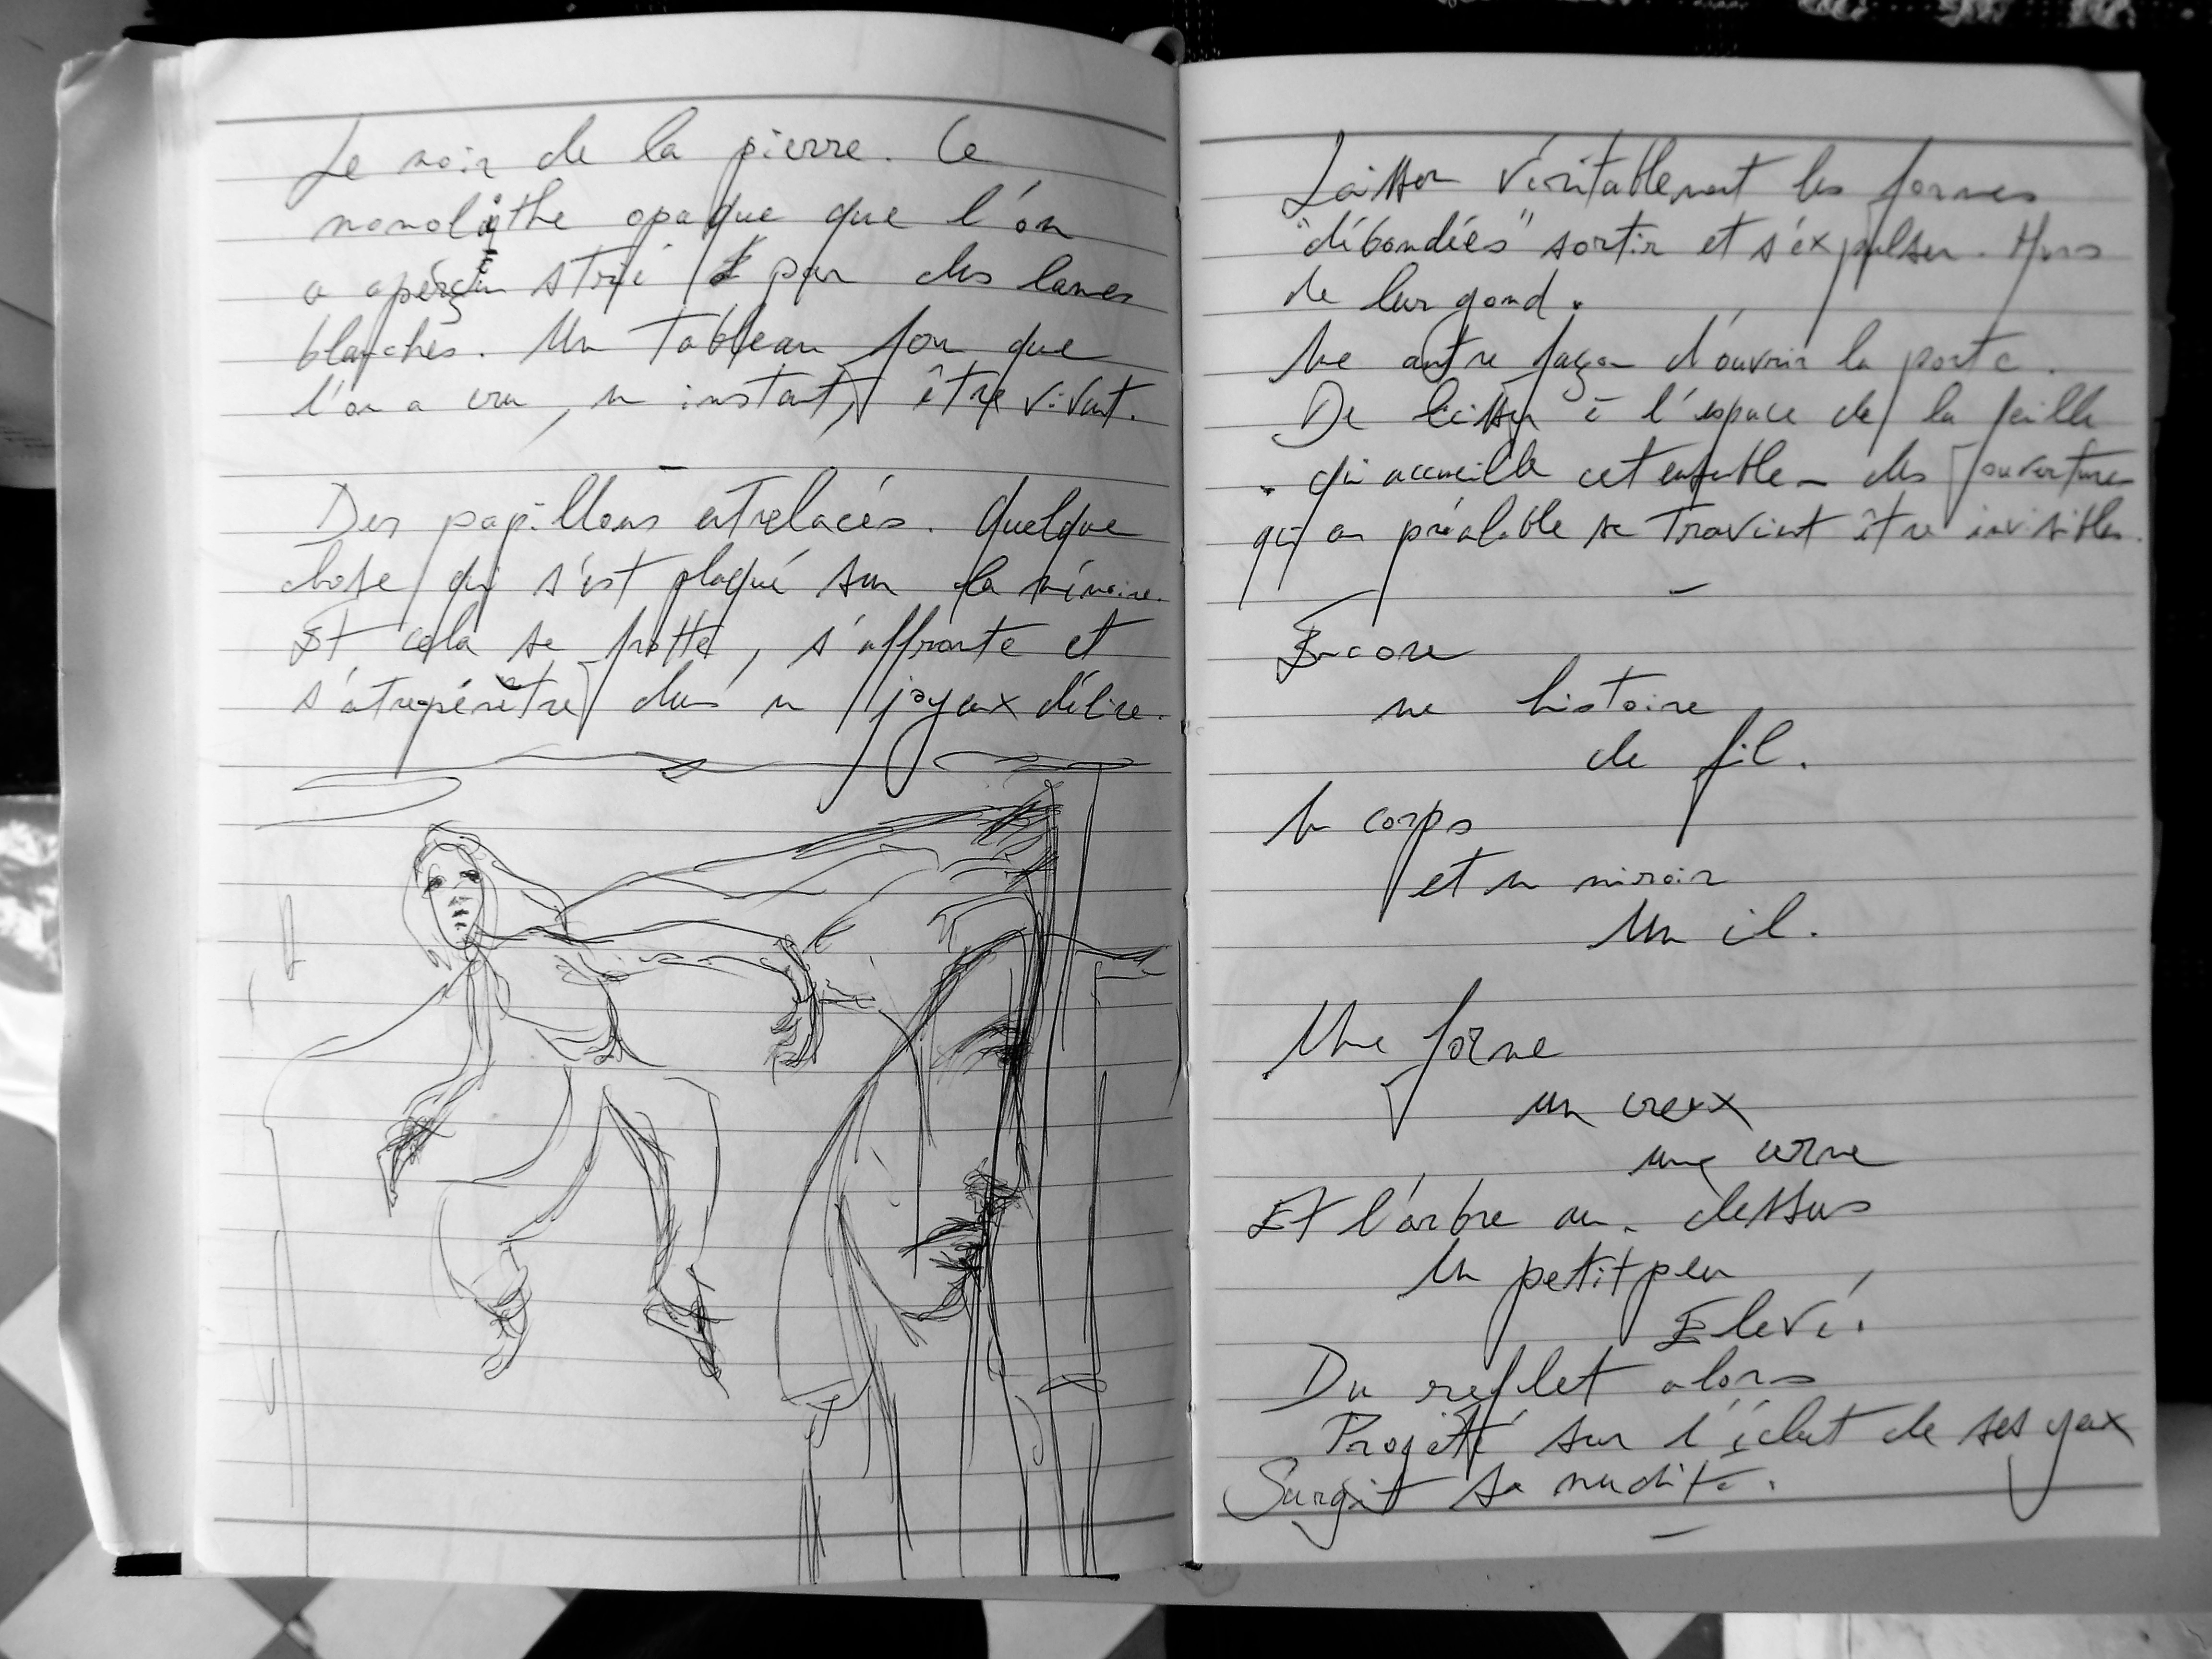 Le noir de la pierre. Ce
monolithe opaque que l'on
a aperçu strié par des lames
blanches. Un tableau fou que
l'on a cru, un instant, être vivant.
Des papillons entrelacés. Quelque
chose qui s'est plaqué sur la mémoire.
Et cela se frotte, s'affronte et
s'entrepénètre dans un joyeux délire.
Laisser véritablement les formes
"débondées" sortir et s'expulser. Hors
de leur gond.
Une autre façon d'ouvrir la porte.
De laisser à l'espace de la feuille
qui accueille cet ensemble - des ouvertures
qui au préalable se trouvaient être invisibles.
Encore
une histoire
de fil.
Un corps
et un miroir
Un il.
Une forme
un creux
une cerne
Et l'arbre au-dessus
Un petit peu
Elevé.
Du reflet alors
Projeté sur l'éclat de ses yeux
Surgit sa nudité.